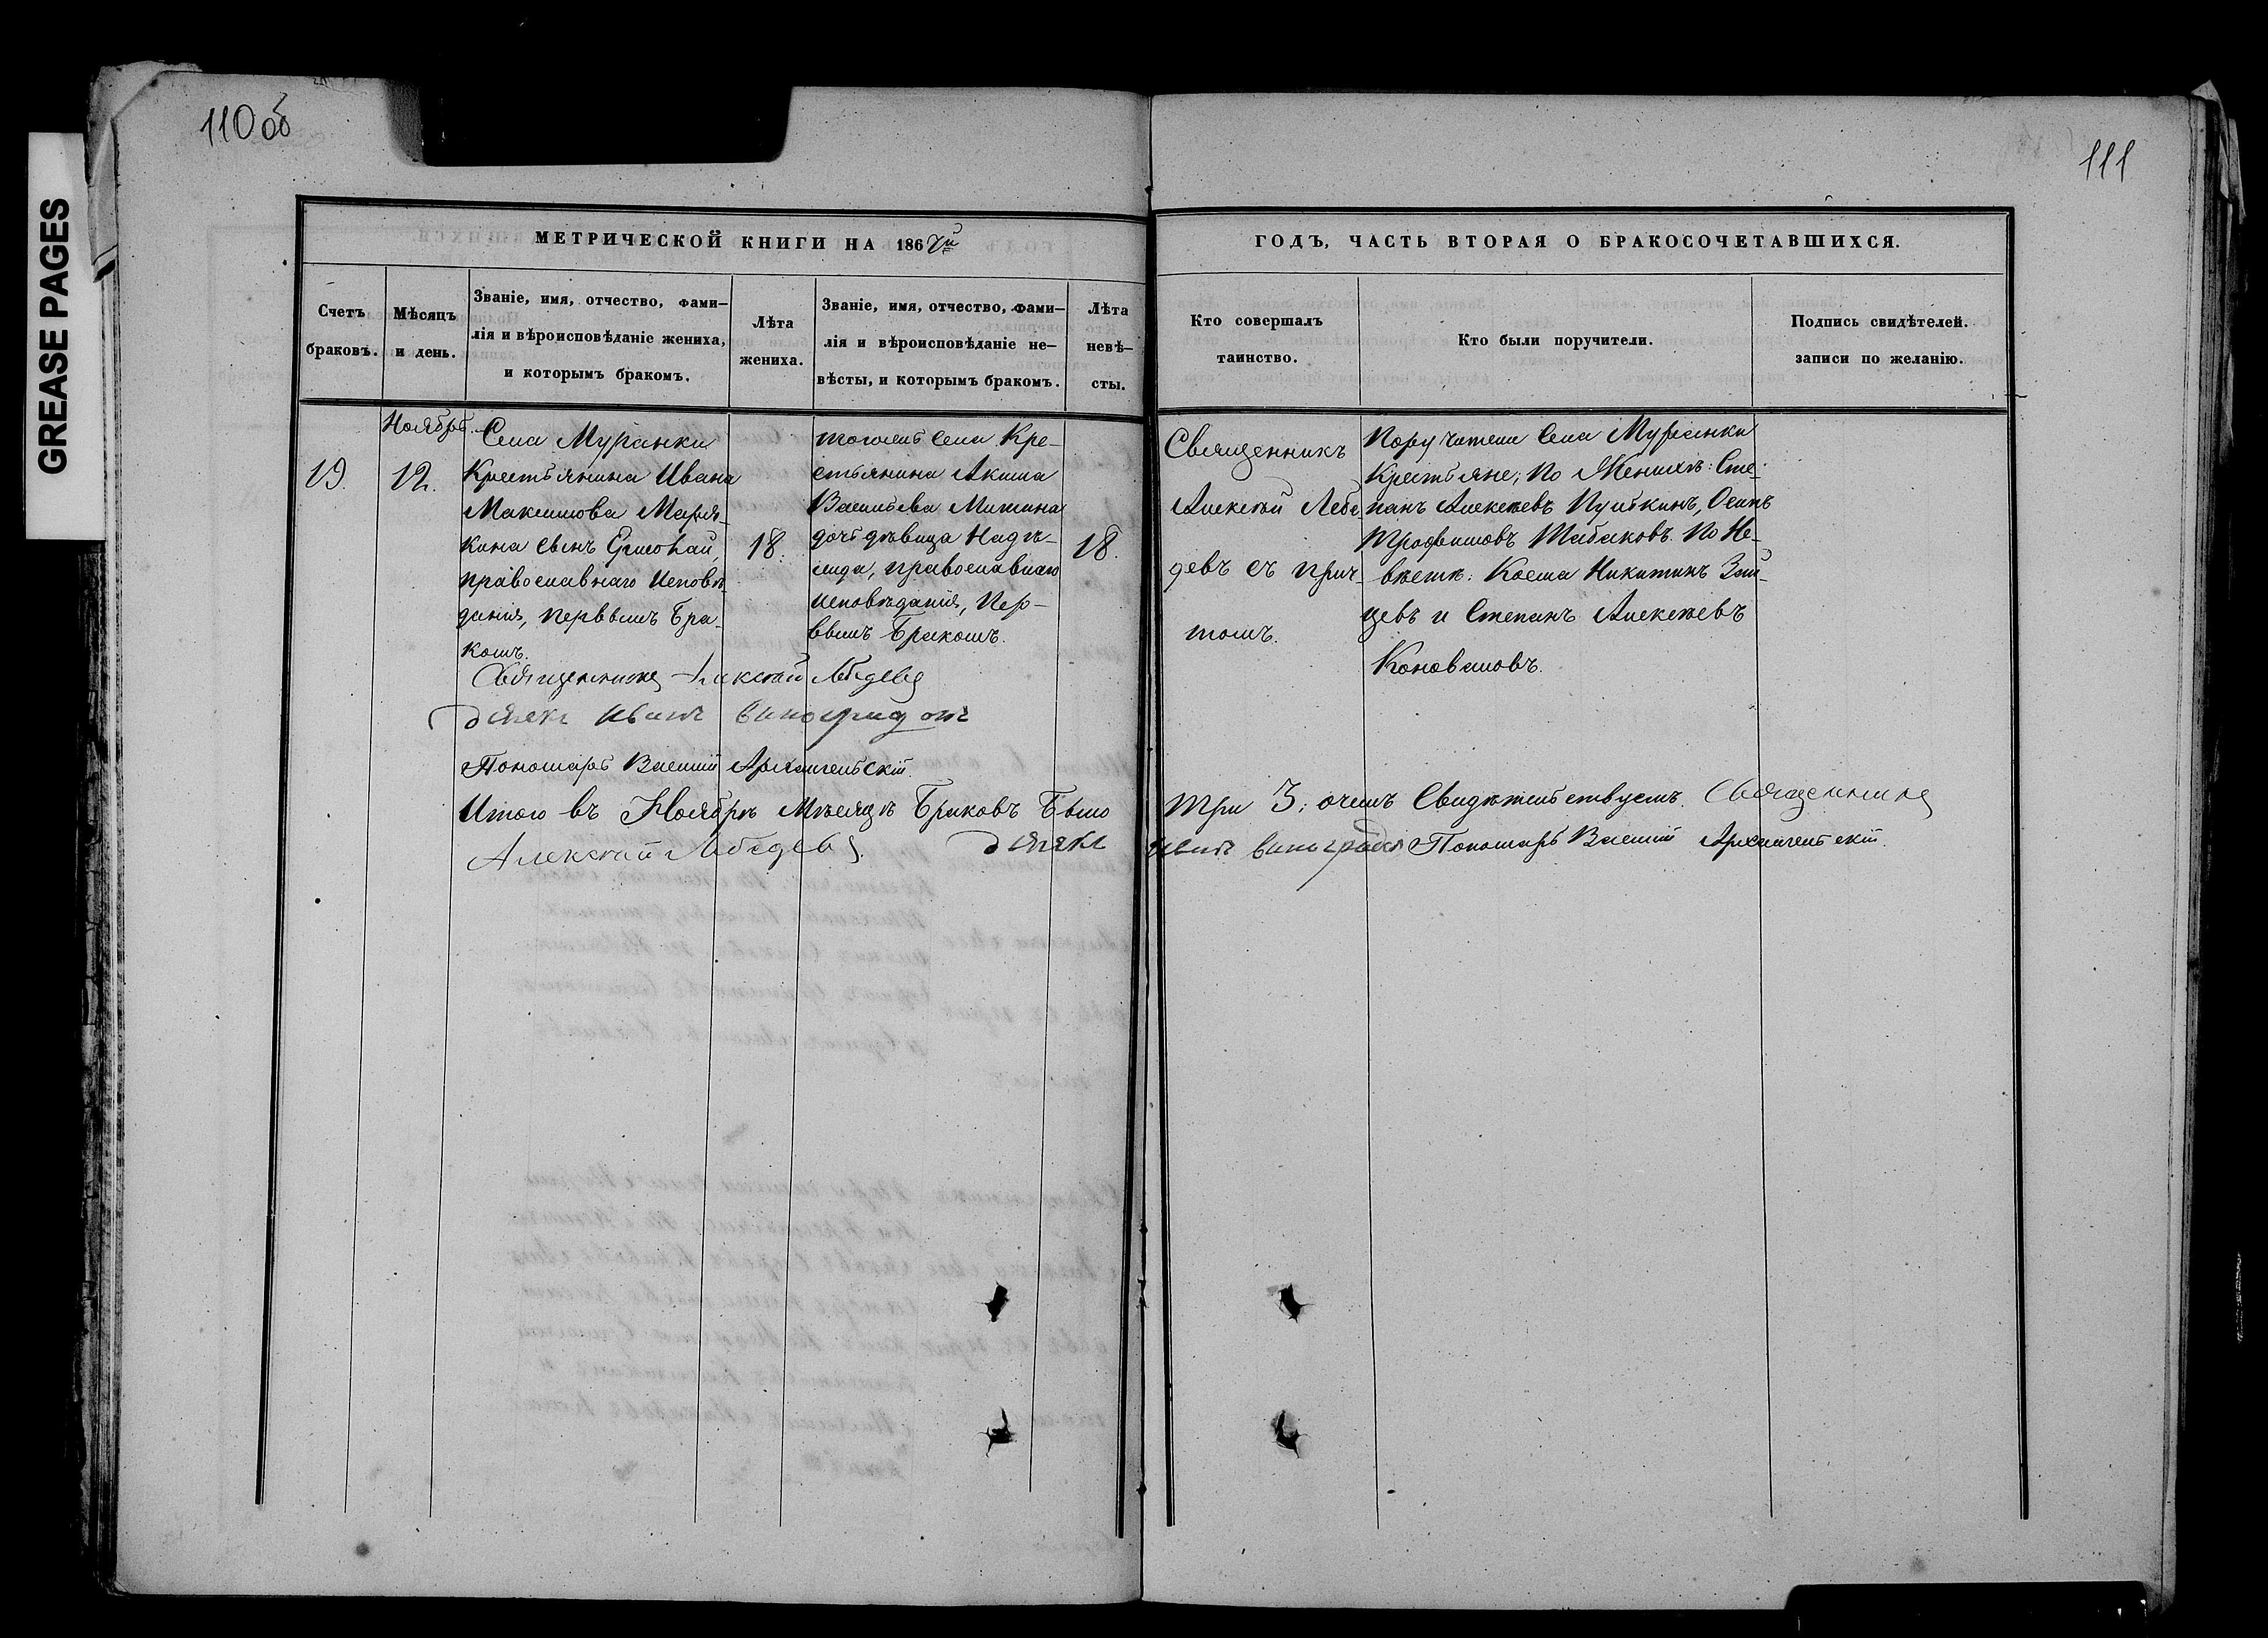 GREASE PAGES
110 об
111
МЕТРИЧЕСКОЙ КНИГИ НА 186
ГОДЪ, ЧАСТЬ ВТОРАЯ О БРАКОСОЧЕТАВШИХСЯ.
Счетъ
браковъ.
Мѣсяцъ
и день.
Званіе, имя, отчество, фами-
лія и вѣроисповѣданіе жениха,
и которымъ бракомъ.
Лѣта
жениха.
Званіе, имя, отчество, фами-
лія и вѣроисповѣданіе не-
вѣсты, и которымъ бракомъ.
Лѣта
невѣ-
сты.
Кто совершалъ
таинство.
Кто были поручители.
Подпись свидѣтелей.
записи по желанію.
19.
Ноябрь.
12.
Села Муранки
Крестьянина Ивана
Максимова Маря-
кина сынъ
православнаго исповѣ-
данія, первымъ бра-
комъ.
18.
тогожъ села Кре-
стьянина Акима
Васильева Митина
дочь дѣвица Надѣ-
жда, православнаго
исповѣданія, пер-
вымъ бракомъ.
18.
Священникъ
Алексѣй Лебе-
девъ съ прич-
томъ.
Поручители Села Муранки
Крестьяне; По Женихѣ: Сте-
панъ Алексѣевъ Пушкинъ, Осипъ
Трофимовъ Табаковъ. По Не-
вѣстѣ: Косма Никитинъ Зай-
цевъ и Степанъ Алексѣевъ
Коноваловъ.
Священникъ Алексѣй Лебедевъ
дьячекъ Иванъ Виноградовъ
Пономарь Василій Архангельскій.
Итого въ Ноябрѣ Мѣсяцѣ Браковъ Было Три 3; очемъ Свидѣтельствуемъ. Священникъ
Алексѣй Лебедевъ. дьячекъ Иванъ Виноградовъ Пономарь Василій Архангельскій.